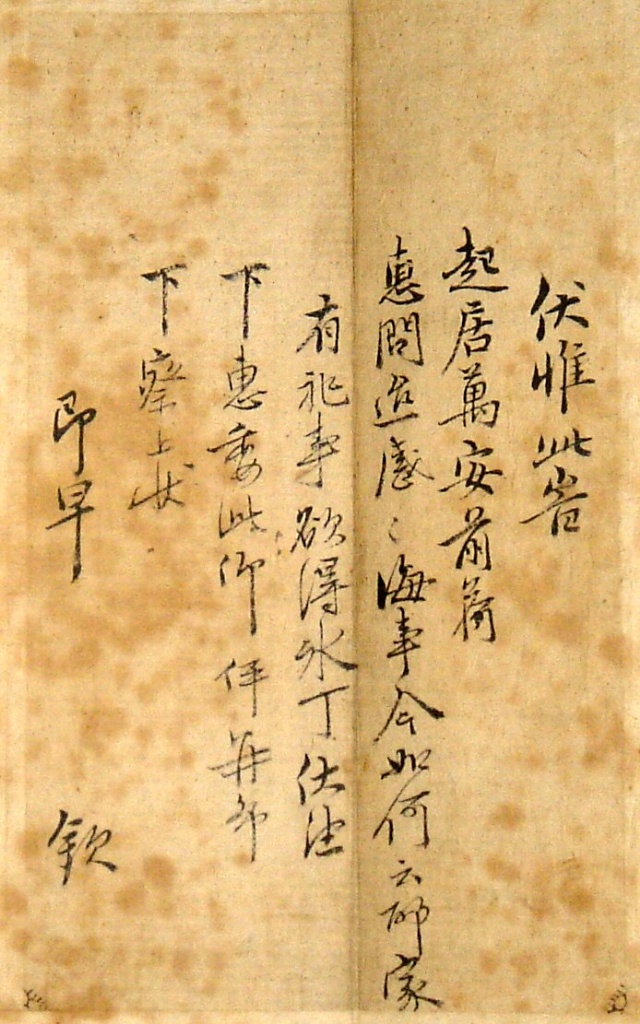 伏惟此者
起居萬安前荷
惠問迨感〻海事今如何云耶家
有祀事欲得氷丁伏望
下惠委此仰伻並命
下察上狀
即早
欽